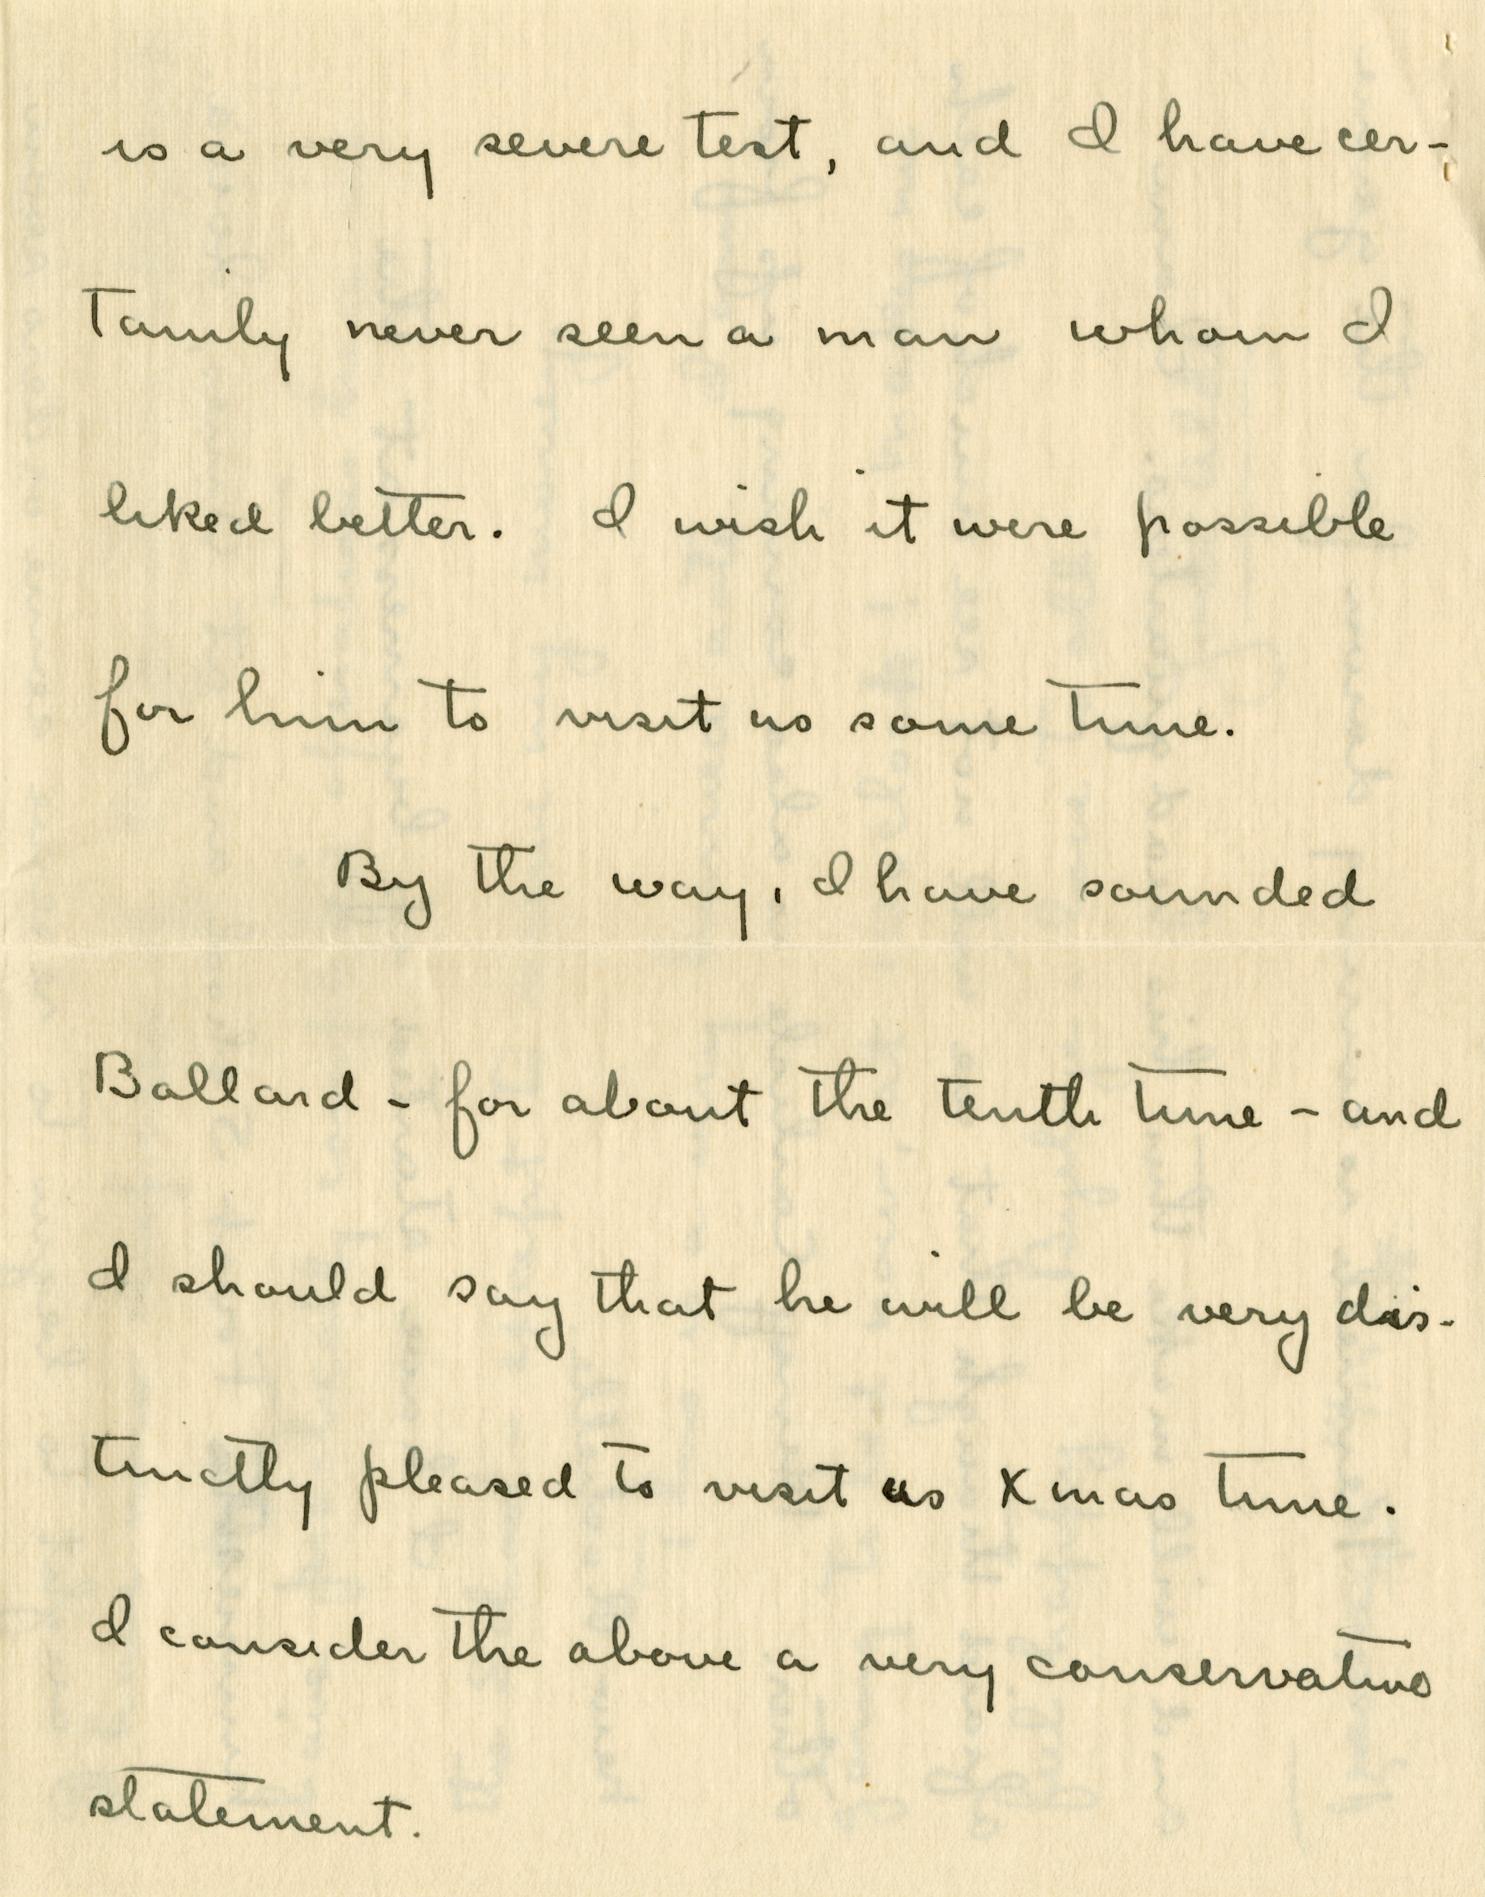 is a very severe test, and I have cer-
tainly never seen a man whom I
liked better. I wish it were possible
for him to visit us some time.
By the way, I have sounded
Ballard - for about the tenth time - and
I should say that he will be very dis-
tinctly pleased to visit us Xmas time.
I consider the above a very conservative
statement.